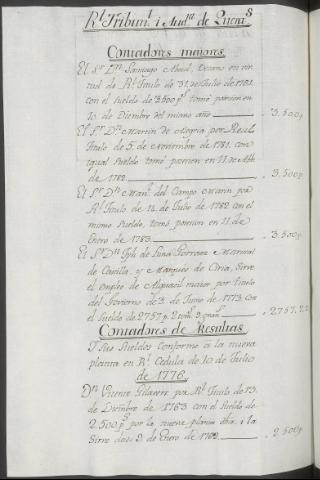 Rl. Tribunl. i Auda. de Quentas
Contadores maiores.
El Sr. Dn. Santiago Abad, Decano en vir
tud de Rl. Titulo de 31 de Julio de 1781.
con el sueldo de 3.500 ps. tomó posesion en
10 de Diembre del mismo año 3.500 p
El Sr. Dn. Martin de Alegria por Real
Titulo de 5 de Noviembre de 1781. con
igual sueldo tomó posesion en 11 de
de 1782 3.500 p
El Sr. Dn. Manl. del Campo Marin por
Rl. Titulo de 14 de Julio de 1782 con el
mismo sueldo, tomó posesion en 11 de
Enero de 1783 3.500 p
El Sr. Dn. Jph. de Luna Gorraez Mariscal
de Castilla, y Marques de Ciria, sirve
el empleo de Alguacil maior por titulo
del Govierno de 3 de Junio de 1773 con
el sueldo de 2757 p. 2 2.757, 2.2
Contadores de Resultas
Y sus sueldos conforme á la nueva
planta en Rl. Cedula de 10 de Julio
de 1776.
Dn. Vicente por Rl. Titulo de 13
de Diciembre de 1763 con el sueldo de
2.500 ps. por la nueva planta i la
sirve desde 9 de Enero de 1782 2.500 p